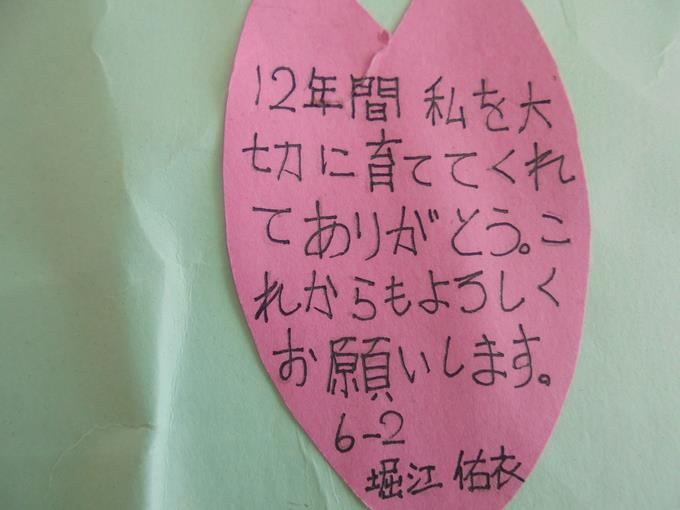 12年間 私を大
切に育ててくれ
てありがとう。こ
れからもよろしく
お願いします。
6-2
堀江 佑衣